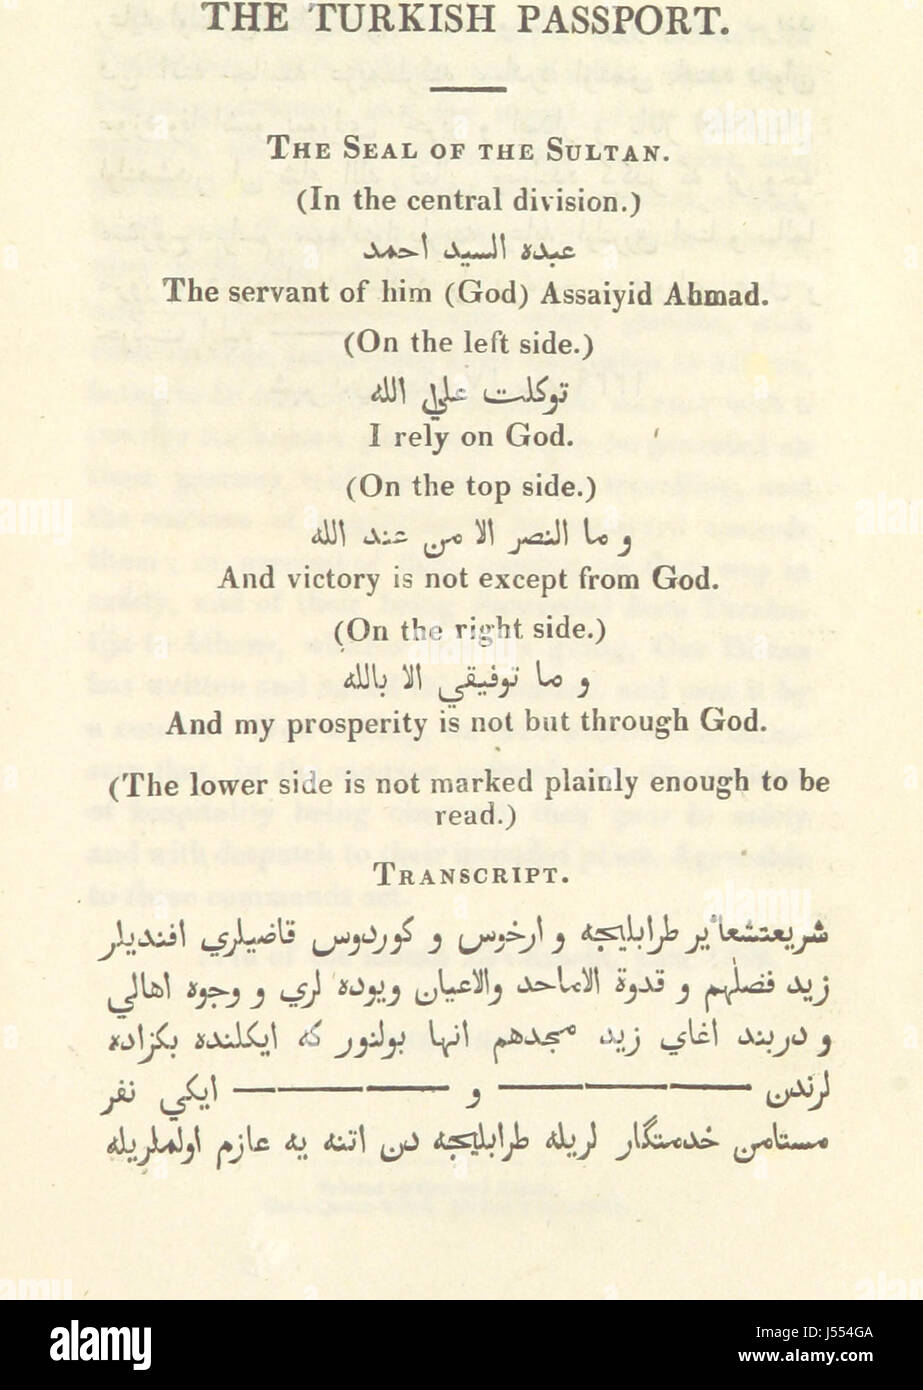 THE TURKISH PASSPORT.
THE SEAL OF THE SULTAN.
(In the central division.)
عبده السيد احمد
The servant of him (God) Assaiyid Ahmad.
(On the left side.)
توكلت علي الله
I rely on God.
(On the top side.)
و ما النصر الا من عند الله
And victory is not except from God.
(On the right side.)
و ما توفيقي الا بالله
And my prosperity is not but through God.
(The lower side is not marked plainly enough to be
read.)
TRANSCRIPT.
شريعتشعاير طرابليجه و ارخوس و كوردوس قاضيلري افنديلر
زيد فضلهم و قدوة الاماجد والاعيان ويوده لري و وجوه اهالي
و دربند اغاي زيد مجدهم انها بولنور كه ايكلنده بكزاده
لرندن ——— و ——— ايكي نفر
مستامن خدمتگار لريله طرابليجه دن اتنه يه عازم اولملريله
alamy
Image ID: J554GA
www.alamy.com